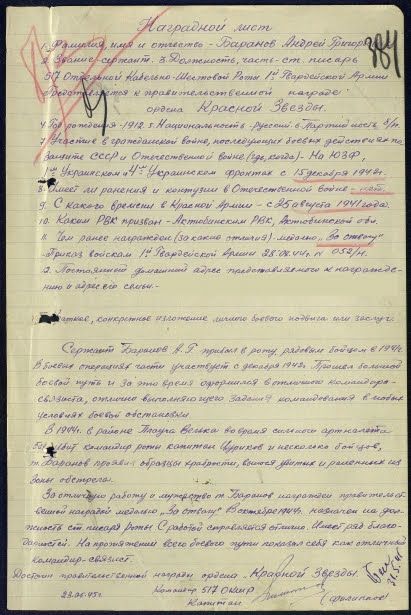 Наградной лист
1. Фамилия, имя и отчество - Баранов Андрей Григор
2. Звание - сержант. 3. Должность, часть - ст. писарь
517 Отдельной Кабельно-Шестовой Роты 1й Гвардейской Армии
представляется к правительственной награде:
ордена Красной Звезды.
384
4. Год рождения - 1912 г. Национальность - русский. 6. Партийность б/п.
7. Участие в гражданской войне, последующих боевых действиях по
защите СССР и Отечественной войне (где, когда) - На ЮЗФ,
1м Украинском и 4м Украинском фронтах с 15 декабря 1942 г.
8. Имеет ли ранения и контузии в Отечественной войне - нет.
9. С какого времени в Красной Армии - с 25 августа 1941 года.
10. Каким РВК призван - Актюбинским РВК, Актюбинской обл.
11. Чем ранее награжден (за какие отличия) - медалью "За отвагу"
Приказ войскам 1й Гвардейской Армии 28.04.44г. № 052/н.
2. Постоянный домашний адрес представляемого к награжде-
нию и адрес его семьи. -
конкретное изложение личного боевого подвига или заслуг.
Сержант Баранов А.Г. прибыл в роту рядовым бойцом в
В боевых операциях части участвует с декабря 1942г. Прошел большой
боевой путь и за это время оформился в отличного командира-
связиста, отлично выполняющего задания командования в любых
условиях боевой обстановки.
В 1944г. в районе во время сильного артналета
командир роты капитан и несколько бойцов,
т. Баранов проявил образцы храбрости, вынося убитых и раненных из
зоны обстрела.
За отличную работу и мужество т. Баранов награжден правительст-
венной наградой медалью "За отвагу". В октябре 1944г. назначен на дол-
жность ст. писаря роты. С работой справляется отлично. Имеет ряд благо-
дарностей. На протяжении всего боевого пути показал себя как отличный
командир-связист.
Достоин правительственной награды ордена "Красной Звезды".
Командир 517 ОКШР
23.05.45г. Капитан (Филипков)